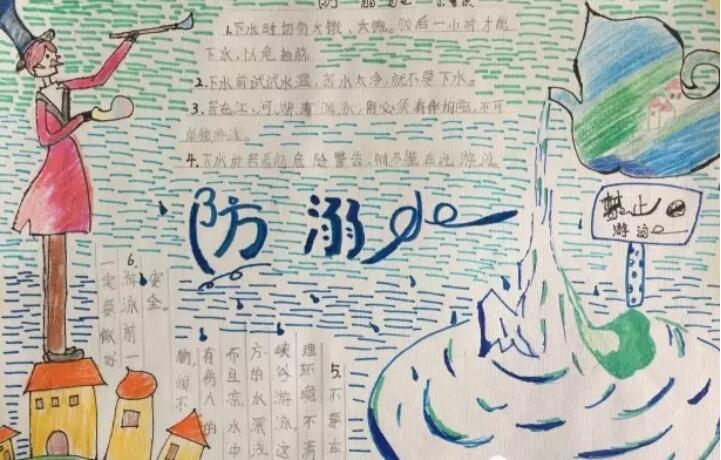 防溺
1.下水时切勿太饿、太饱。饭后一小时才能
下水,以免抽筋
2.下水前试试水温,若水太冷,就不要下水。
3.若在江、河、湖、海游泳,则必须有伴相陪,不可
单独游泳。
4.下水前若看见危险警告,则不能在此游泳
防溺水
禁止
游泳
5.不要在
理环境不清
峡谷游泳这
方的水深浅
而且凉,水中
有伤人的
物,很不
安全。
6.游泳前一
定要做好